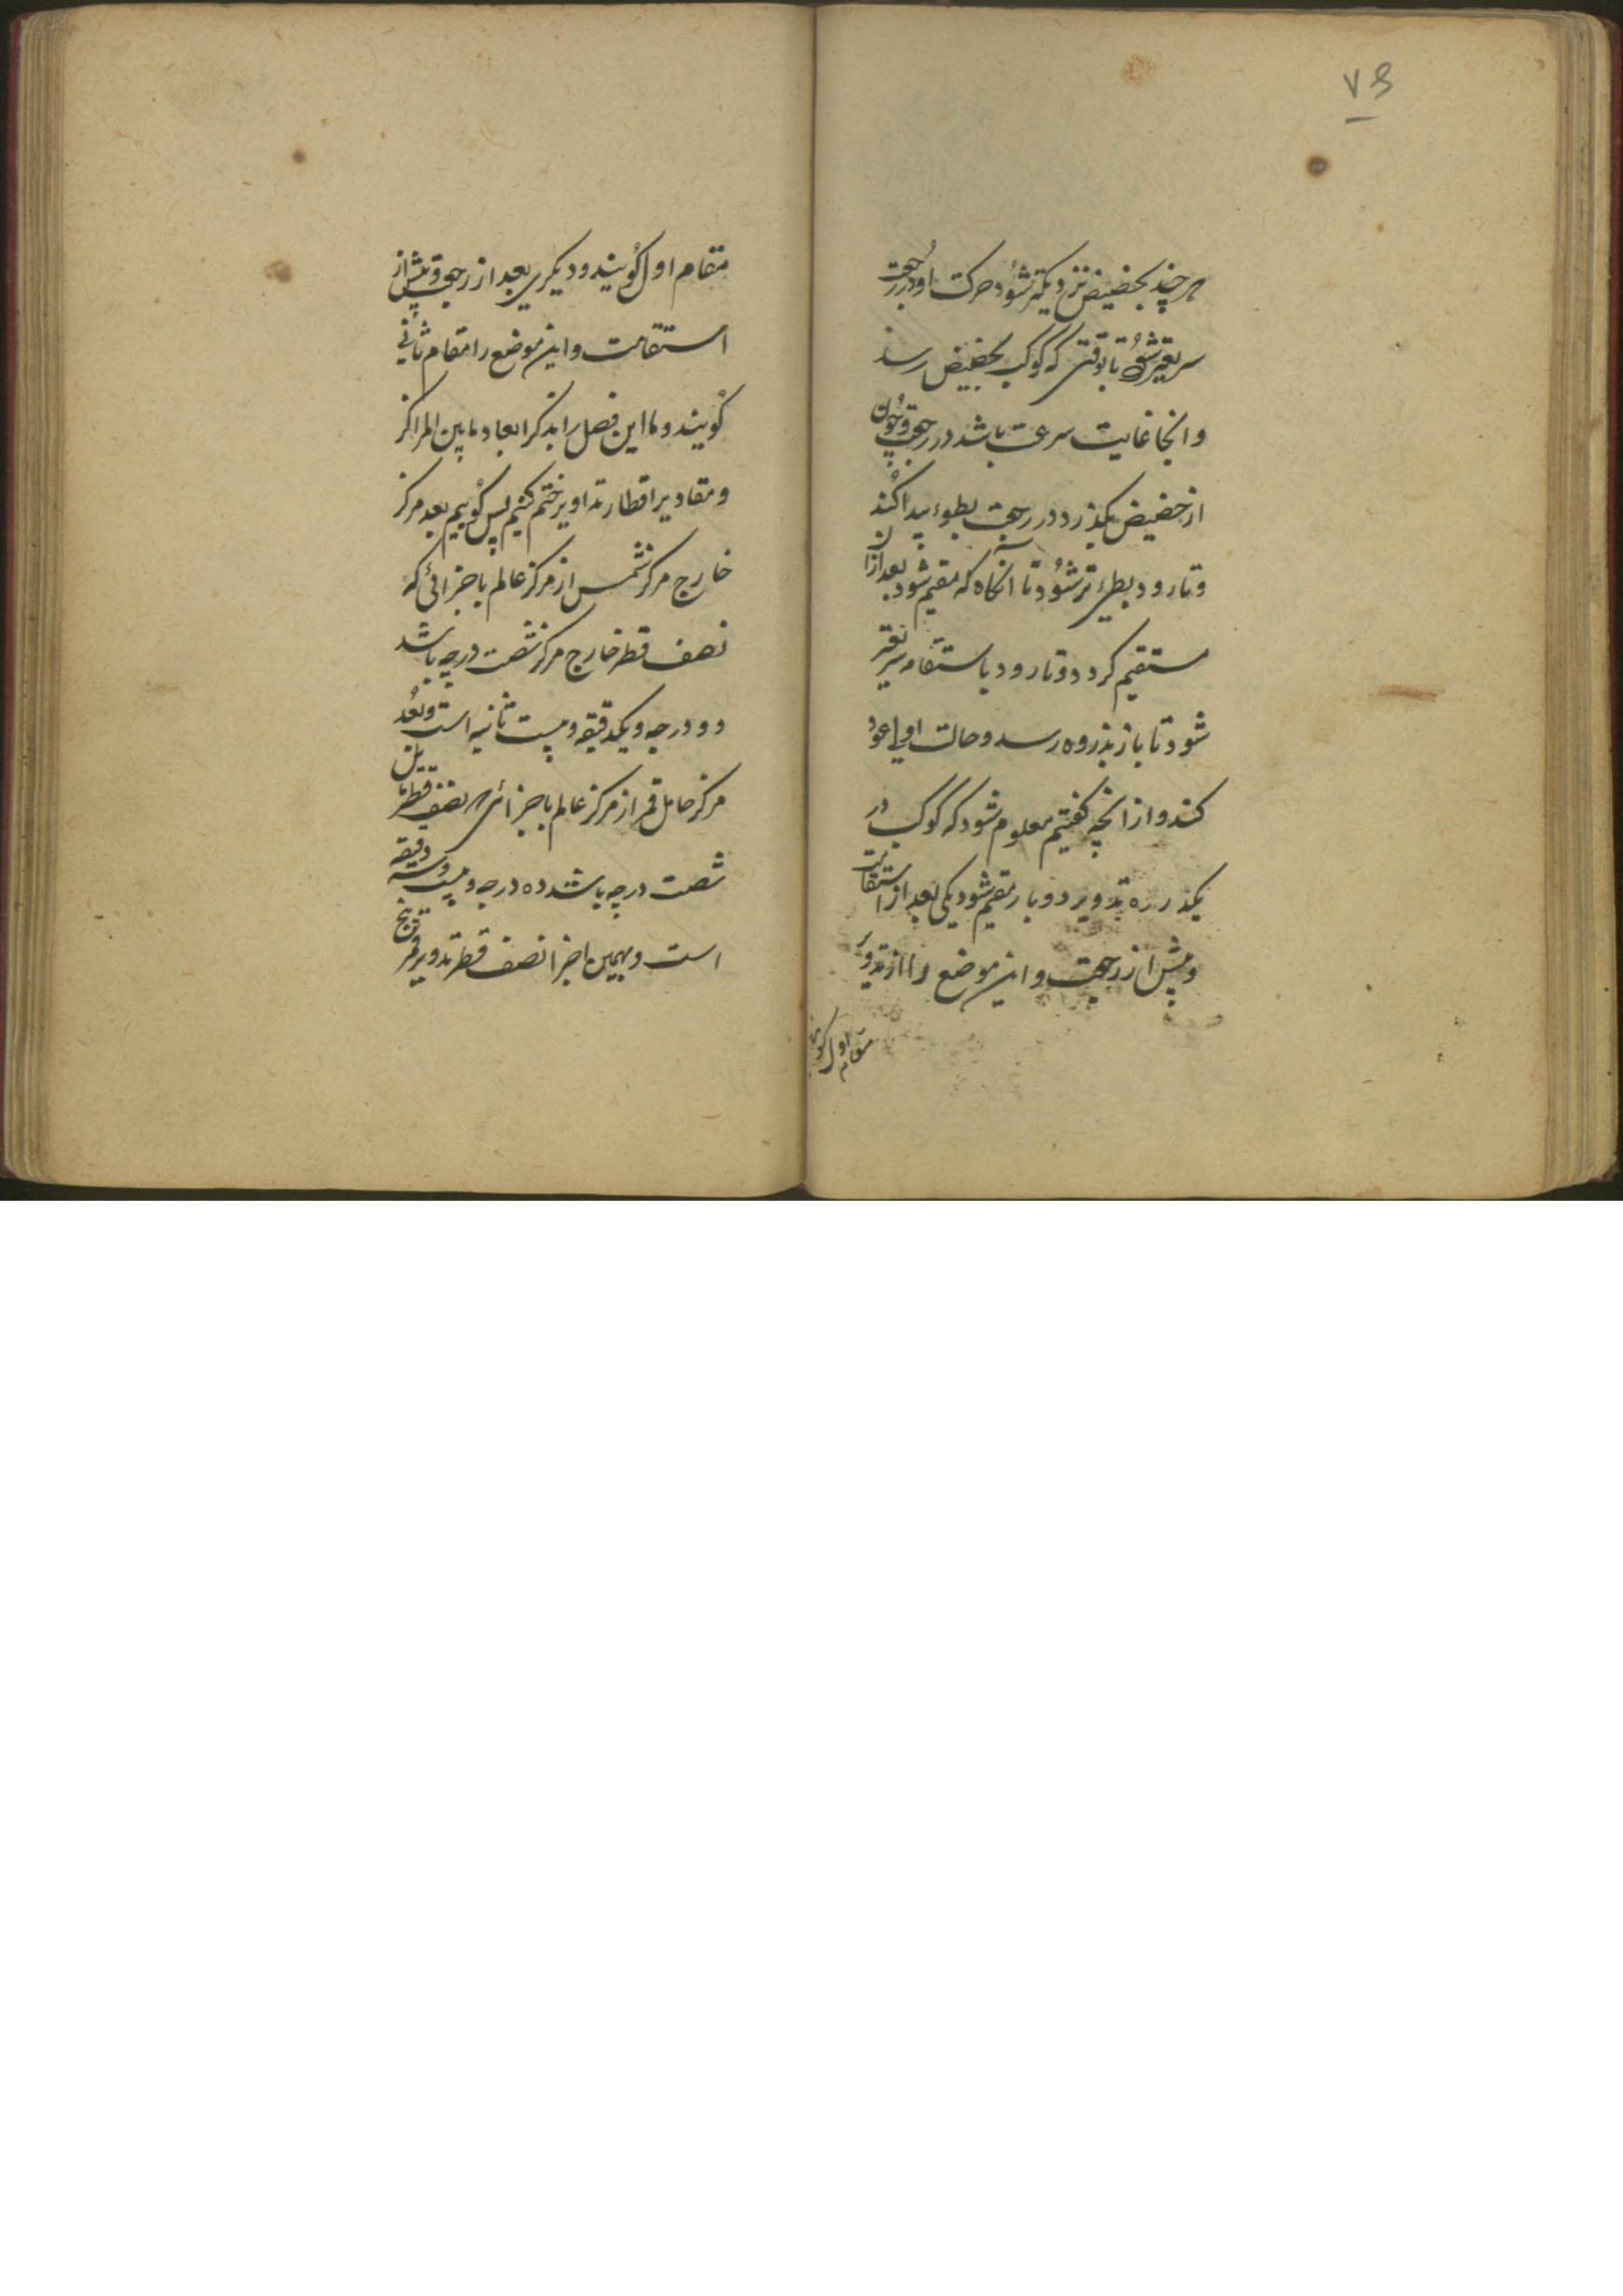 ۷۵
هر چند بحضیض نزدیکتر شود حرکت او در رجعت
سریعتر شود تا بوقتی که کوکب بحضیض رسد
و انجا غایت سرعت باشد در رجعت و چون
از حضیض بگذرد در رجعت بطوء پیدا کند
و تا رود بطیء تر شود تا آنگاه که مقیم شود بعد ازان
مستقیم گردد و تا رود باستقامه سریعتر
شود تا باز بذروه رسد و حالت اولی عود
کند و از انچه گفتیم معلوم شود که کوکب در
یکدوره تدویر دو بار مقیم شود یکی بعد از استقامت
و پیش از رجعت و این موضع را از تدویر
مقام اول گویند
مقام اول گویند و دیگری بعد از رجعت و پیش از
استقامت و این موضع را مقام ثانی
گویند و ما این فصل را بذکر ابعاد ما بین المراکز
و مقادیر اقطار تداویر ختم کنیم پس گوییم بعد مرکز
خارج مرکز شمس از مرکز عالم باجزائی که
نصف قطر خارج مرکز شصت درجه باشد
دو درجه و یکدقیقه و بیست ثانیه است و بعد
مرکز حامل قمر از مرکز عالم باجزائی که نصف قطر مایل
شصت درجه باشد ده درجه و بیست و سه دقیقه
است و بهمین اجزا نصف قطر تدویر قمر پنج